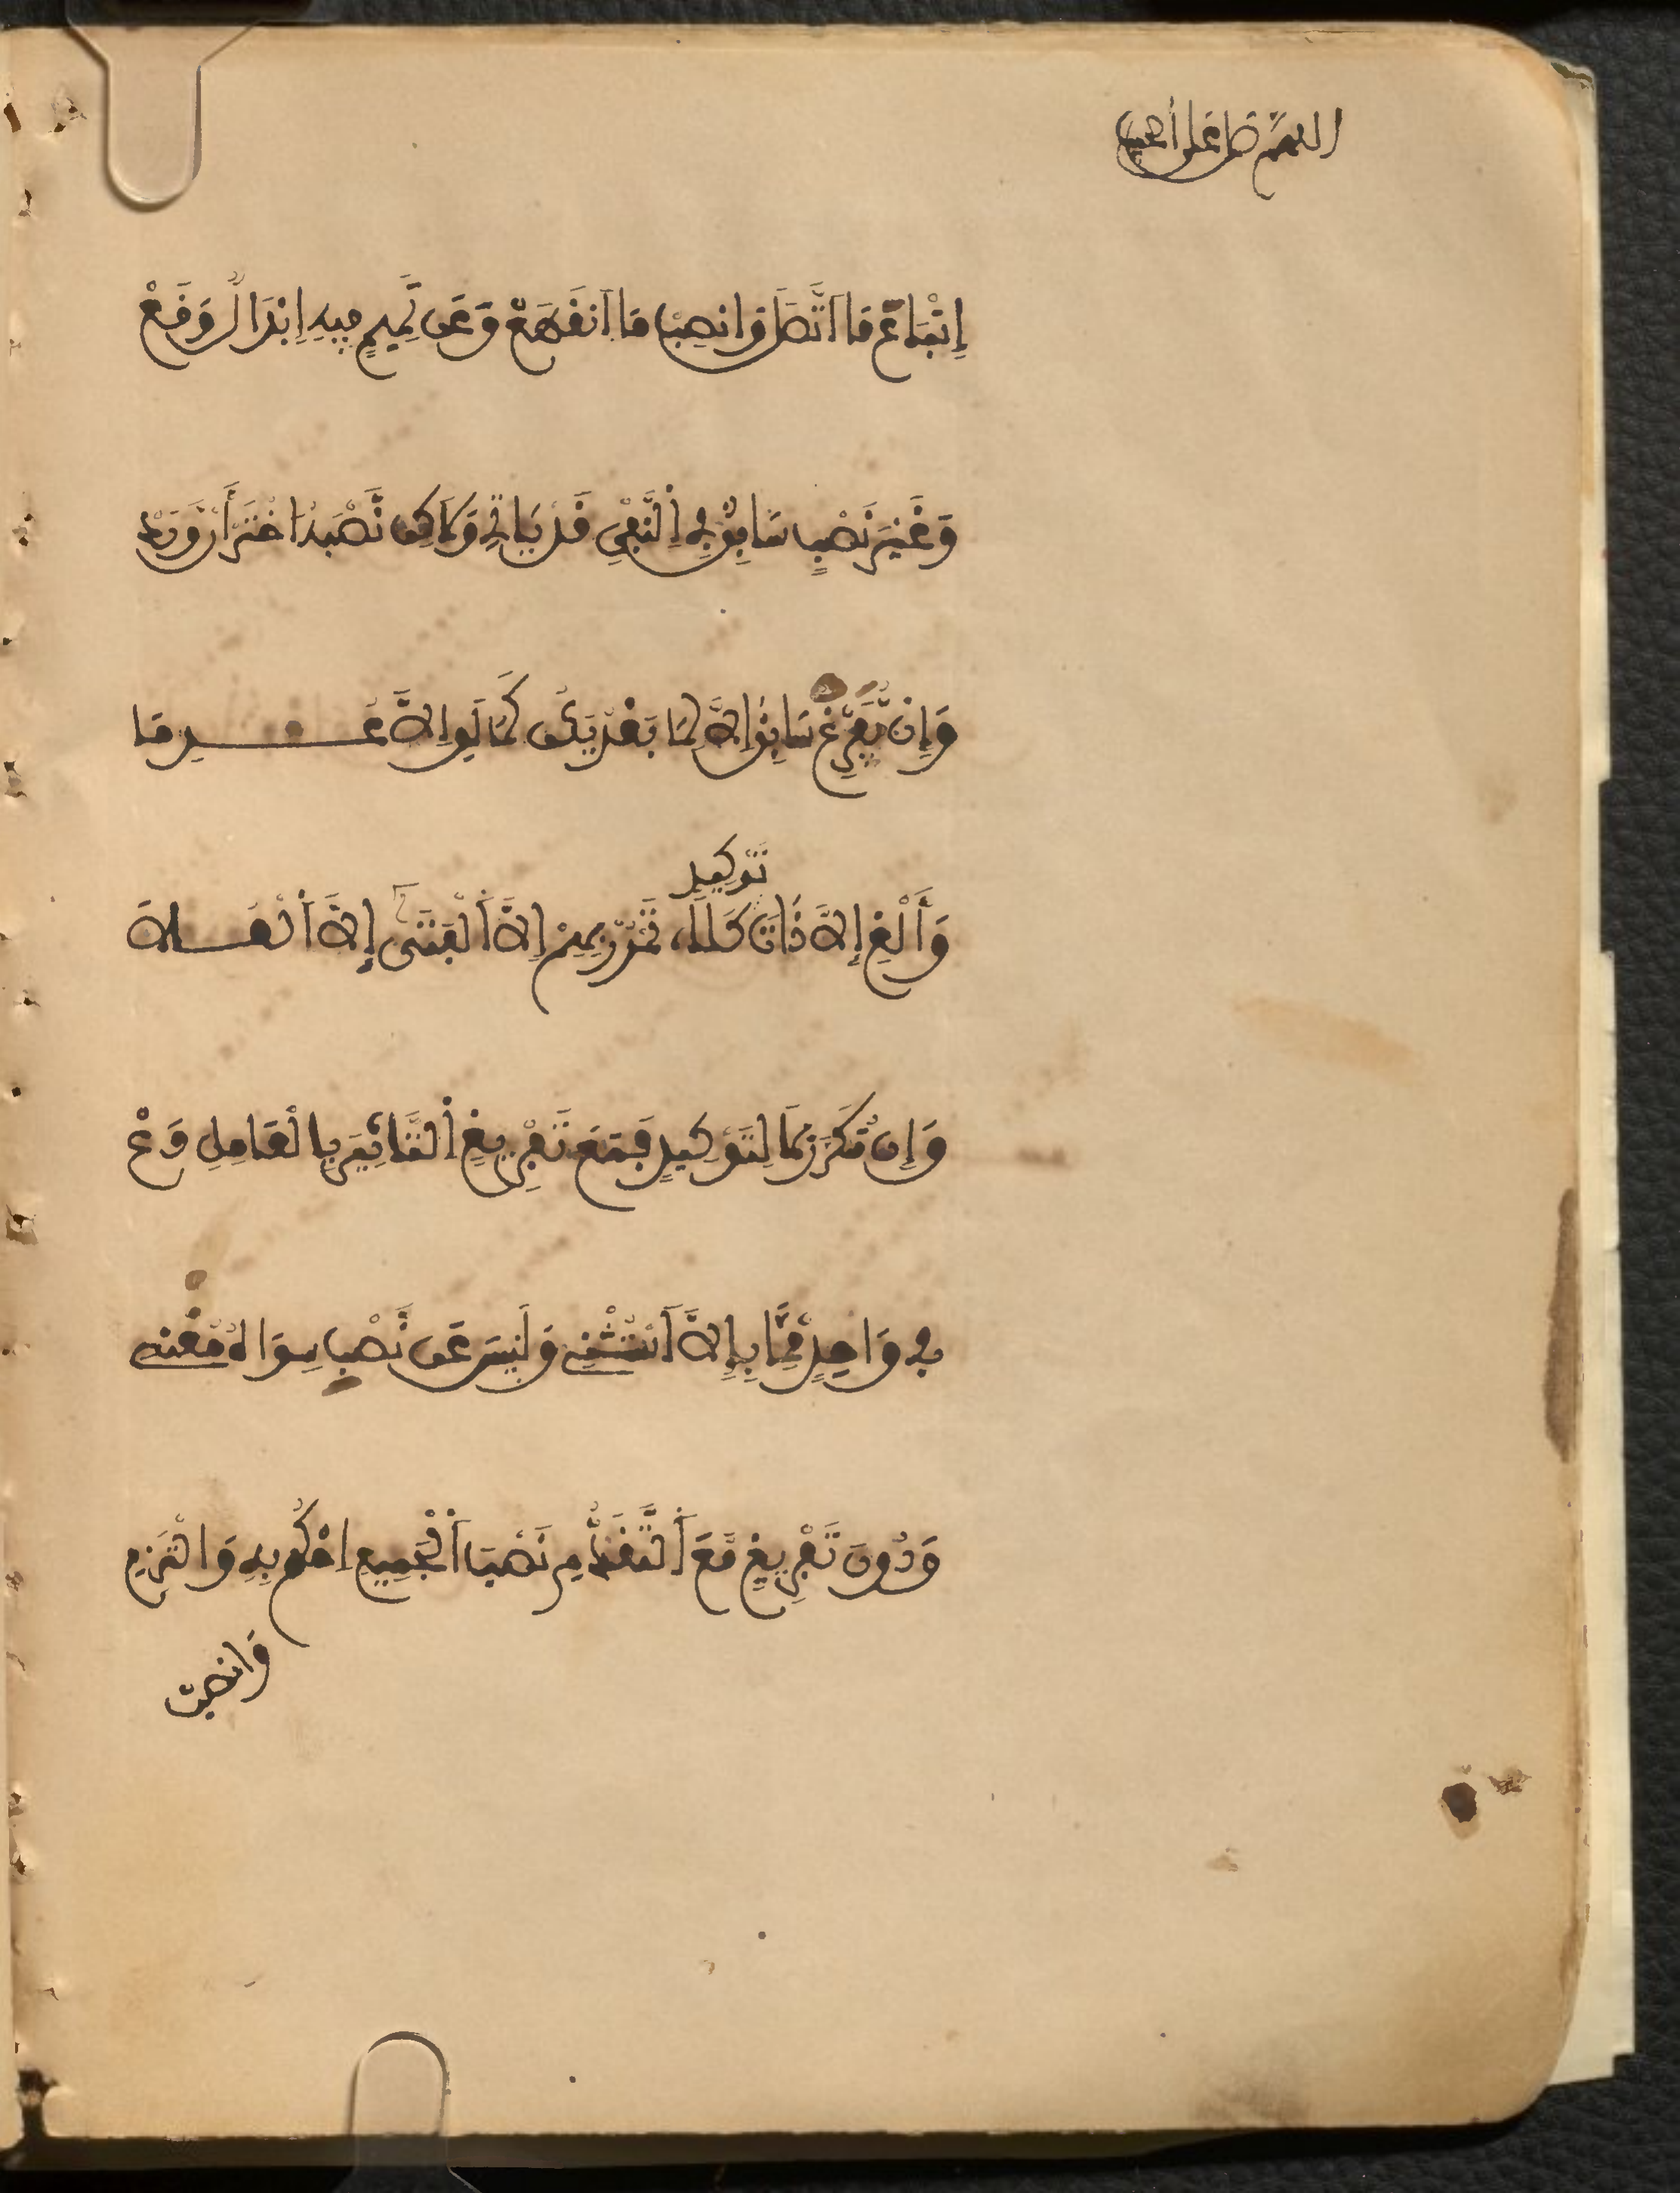 اللهم صل على الحبيب
إِتْبَاعُ مَا اَتَّصَلَ وَانصِبْ مَا اَنفَطَعْ وَعَن تَّمِيمٍ فِيهِ إِبْدَالٌ وَفَعْ
وَغَيْرَ نَصْبِ سَابِقٍ فِي اِلنَّفْيِ قَدْ يَاتِي وَلَاكِن نَّصْبَهُ اخْتَرْ أَن وَرَدْ
وَإِنْ يُّفَرَّغْ سَابِقٌ إِلَّا لِمَا بَعْدُ يَكُن كَمَا لَوِ إِلَّا عُدِمَا
وَأَلْغِ إِلَّا ذَاتَ كَلَلَاء تَمْرُرْ بِهِمْ إِلَّا اَلْفَتَى إِلَّا اَلْعَلَا
تَوْكِيدٍ
وَإِن تُكَرَّرْ لَا لِتَوْكِيدٍ فَمَعَ تَفْرِيغٍ اُلتَّاثِيرَ بِالْعَامِلِ دَعْ
فِي وَاحِدٍ مِّمَّا بِإِلَّا اَسْتُثْنِي وَلَيْسَ عَن نَّصْبِ سِوَاهُ مُغْنِي
وَدُونَ تَفْرِيغٍ مَعَ اَلتَّقَدُّمِ نَصْبَ اَلْجَمِيعِ اِحْكُم بِهِ وَالْتَزِمِ
وَانصِبْ